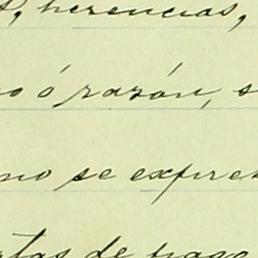 herencias,
o ó razón, s
no se expre
tas de pago